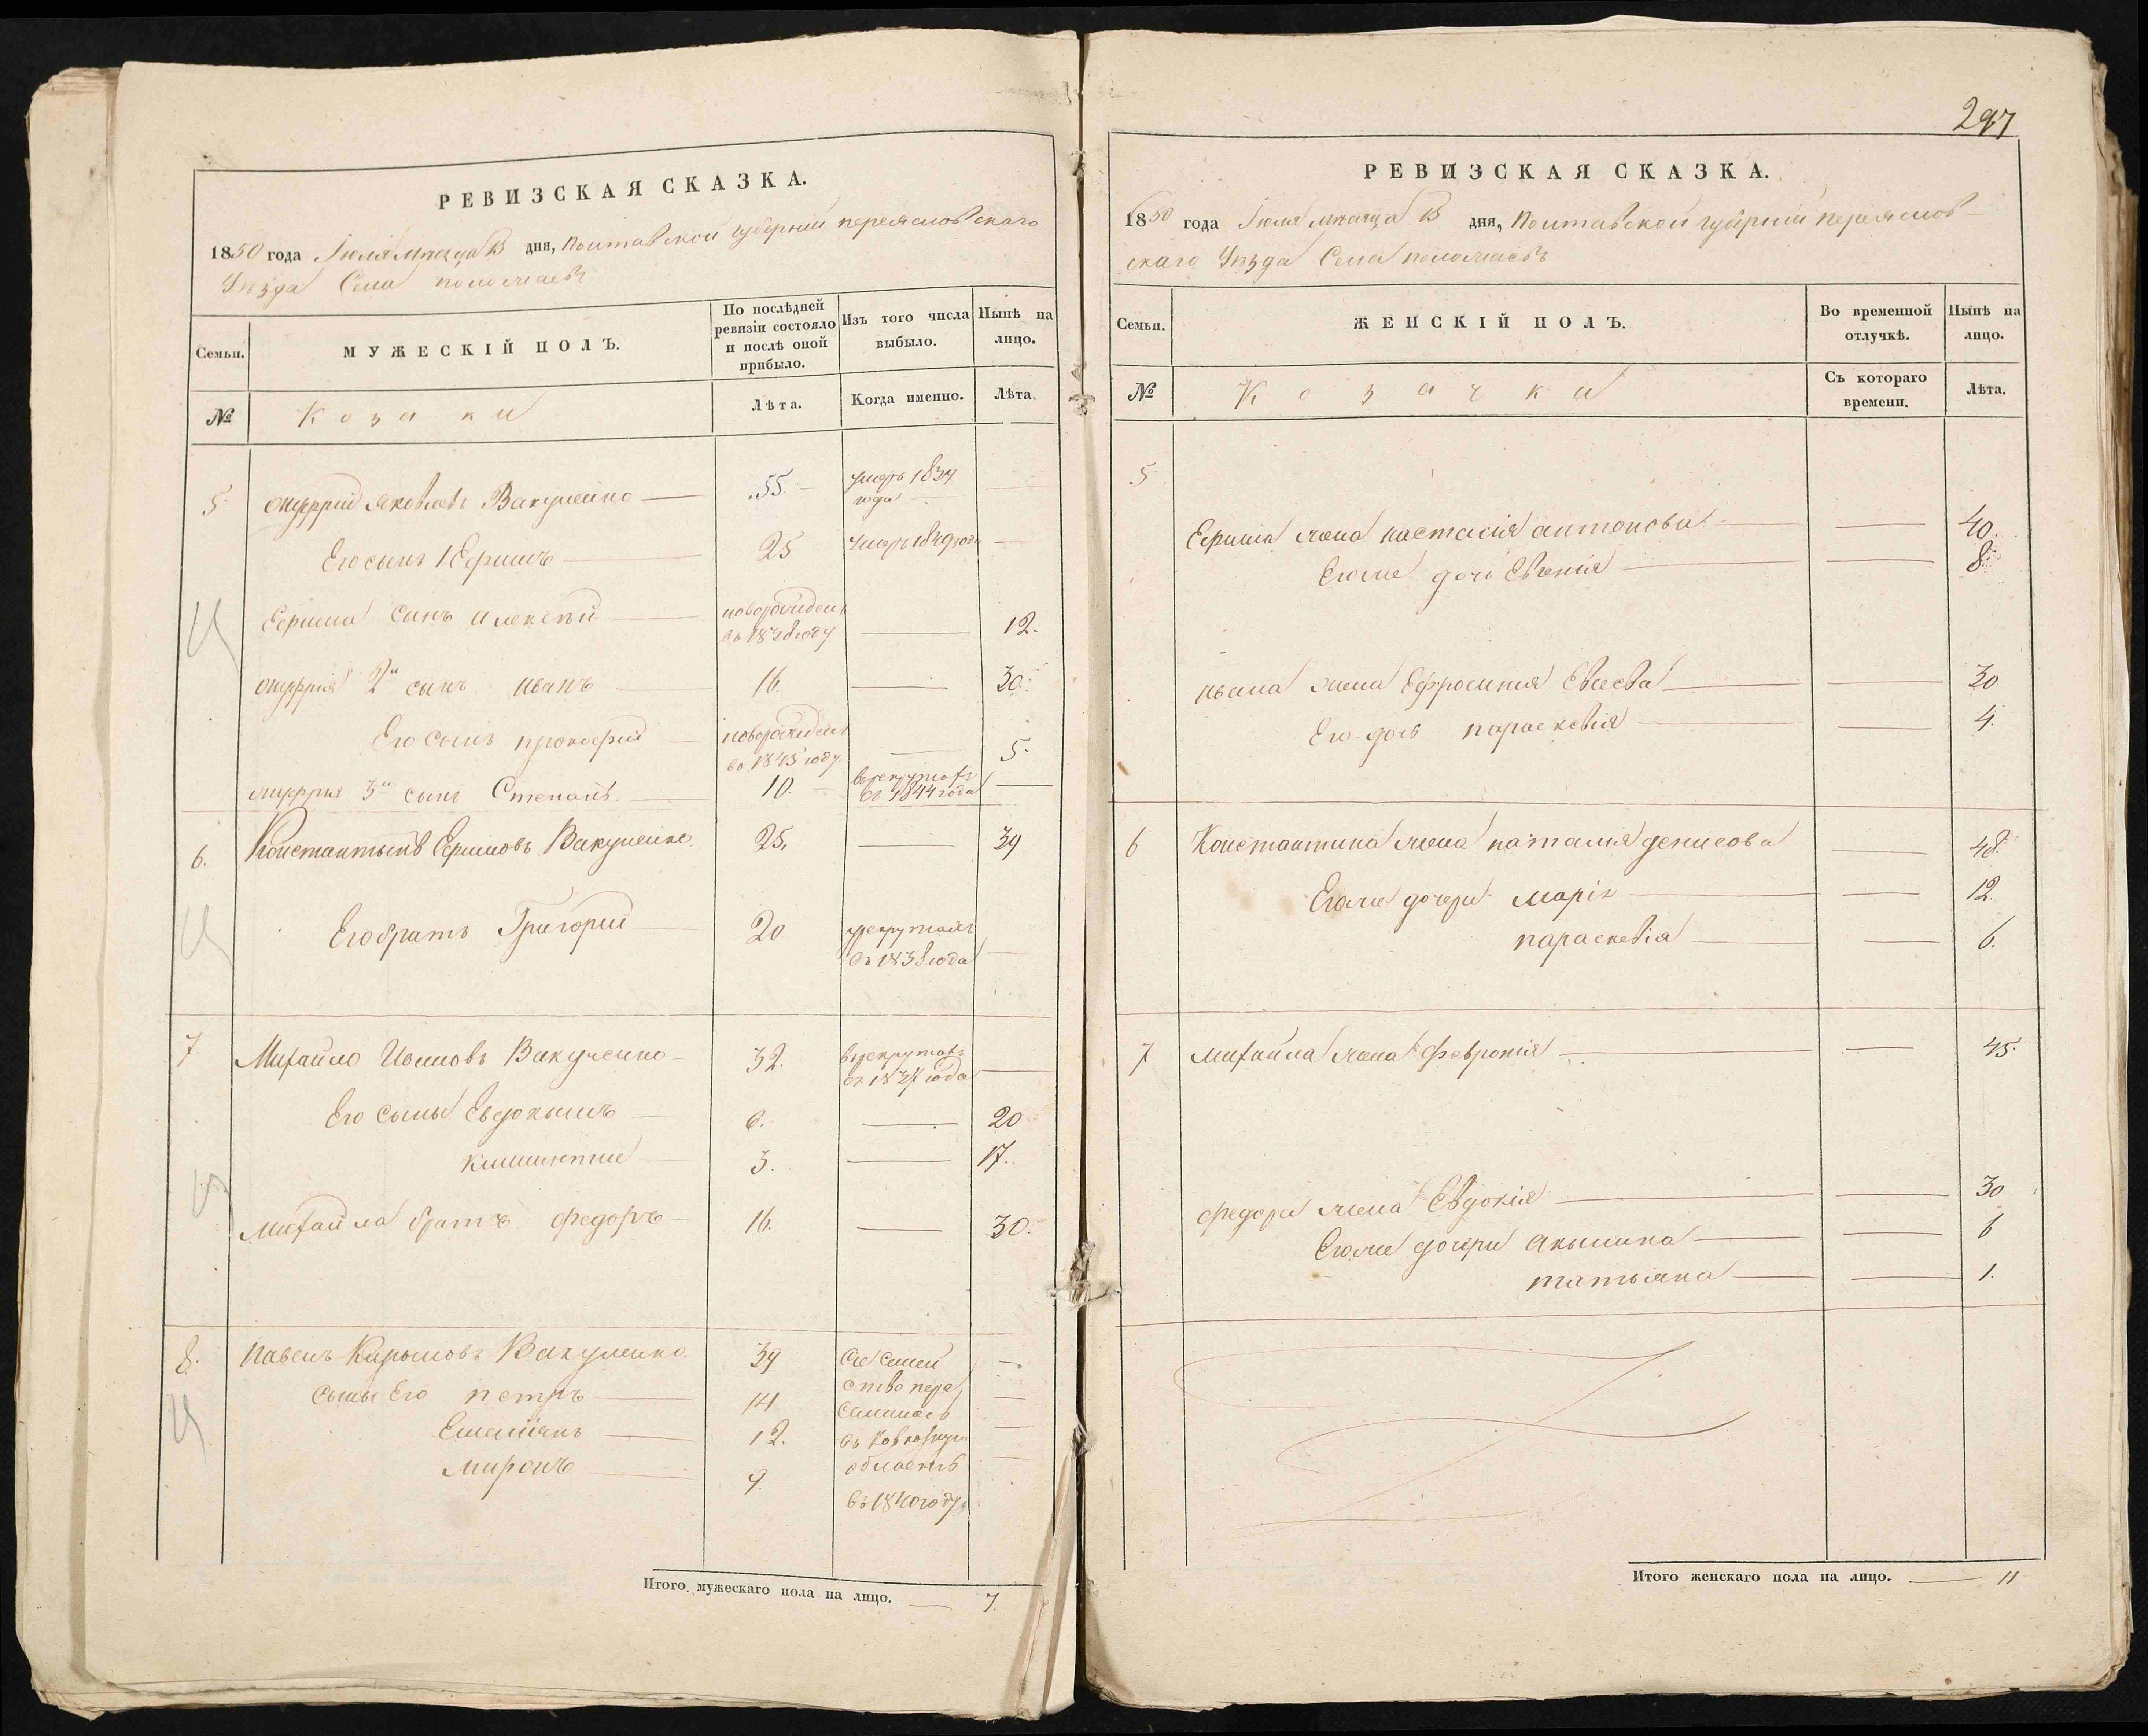 РЕВИЗСКАЯ СКАЗКА.
1850 года Іюля мѣсяца 13 дня, Полтавской губерніи переясловскаго
Уѣзда Села
Семьи.
МУЖЕСКІЙ ПОЛЪ.
По послѣдней ревизіи состояло и послѣ оной прибыло.
Изъ того числа выбыло.
Нынѣ на лицо.
№
Козаки
Лѣта.
Когда именно.
Лѣта.
5. Онуфрий Яковлевъ Вакуленко 55 умеръ 1834 года
Его сынъ 1 Ефимъ 25 Умеръ 1849 года
Ефима Сынъ Алексѣй новорожденъ въ 1838 году 12.
онуфрия 2й сынъ иванъ 16. 30.
Его сынъ прокофий новорожденъ въ 1845 году 5.
онуфрия 3й сынъ Степанъ 10. въ рекрутахъ съ 1844 года
6. Константынъ Ефимовъ Вакуленко 25, 39
Его братъ Григорий 20 въ рекрутахъ съ 1838 года
7. Михайло Вакуленко 32. в рекрутахъ съ года
Его сыны Евдокымъ 6. 20
3. 17.
Михайла братъ Федоръ 16. 30.
8. Павелъ Вакуленко 39 Съ семей
Сыны Его петръ 14 ство пере
Емельянъ 12. селились
миронъ 9. въ Ковказкую
область
въ 1840 году
Итого мужескаго пола на лицо. 7.
297
РЕВИЗСКАЯ СКАЗКА.
1850 года Іюля мѣсяца 13 дня, Полтавской губерніи переяслов-
скаго Уѣзда Села
Семьи.
ЖЕНСКІЙ ПОЛЪ.
Во временной отлучкѣ.
Нынѣ на лицо.
№
Козачки
Съ котораго времени.
Лѣта.
5
Ефима жена настасія антонова 40.
Его же дочь Евгенія 8.
ивана жена Ефросиния 30
Его дочь параскевія 4.
6 Константина жена наталия денисова 48.
Его же дочери марія 12.
параскевія 6.
7 михайла жена Феврония 45.
федора жена Евдокія 30
Его же дочери Акылина 6
татьяна 1.
Итого женскаго пола на лицо. 11